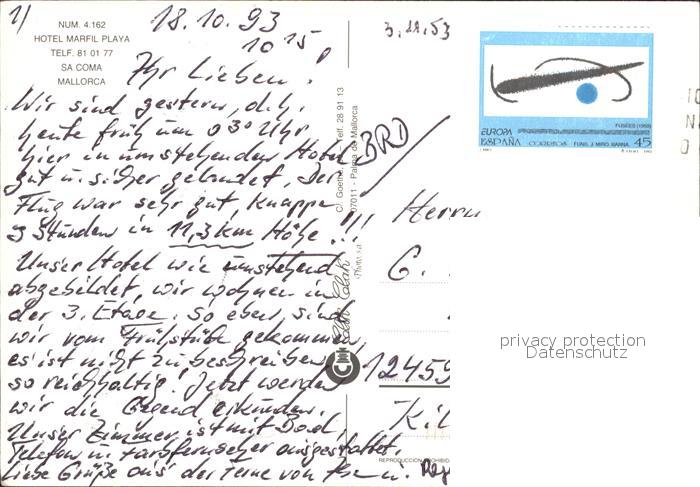 1)
NUM. 4.162
HOTEL MARFIL PLAYA
TELF. 81 01 77
SA COMA
MALLORCA
18.10.93
10 15
Ihr Lieben!
Wir sind gestern, d.h.
heute früh um 0 30 Uhr
hier in umstehenden Hotel
gut u. sicher gelandet. Der
Flug war sehr gut, knappe
3 Stunden in 11,3 km Höhe!!!
Unser Hotel wie umstehend
abgebildet, wir wohnen in
der 3. Etage. So eben, sind
wir vom Frühstück gekommen,
es ist nicht zu beschreiben
so reichhaltig. Jetzt werden
wir die Gegend erkunden.
Unser Zimmer ist mit Bad,
Telefon u. Farbfernseher ausgestattet.
Liebe Grüße aus der Ferne von
Telf. 28 91 13
07011 - Palma de Mallorca
BRD
Herrn
G.
12459
REPRODUCCION PROHIBID
EUROPA
ESPAÑA
CORREOS
FUSEES (1959)
FUND. J. MIRO. BARNA.
45
privacy protection
Datenschutz